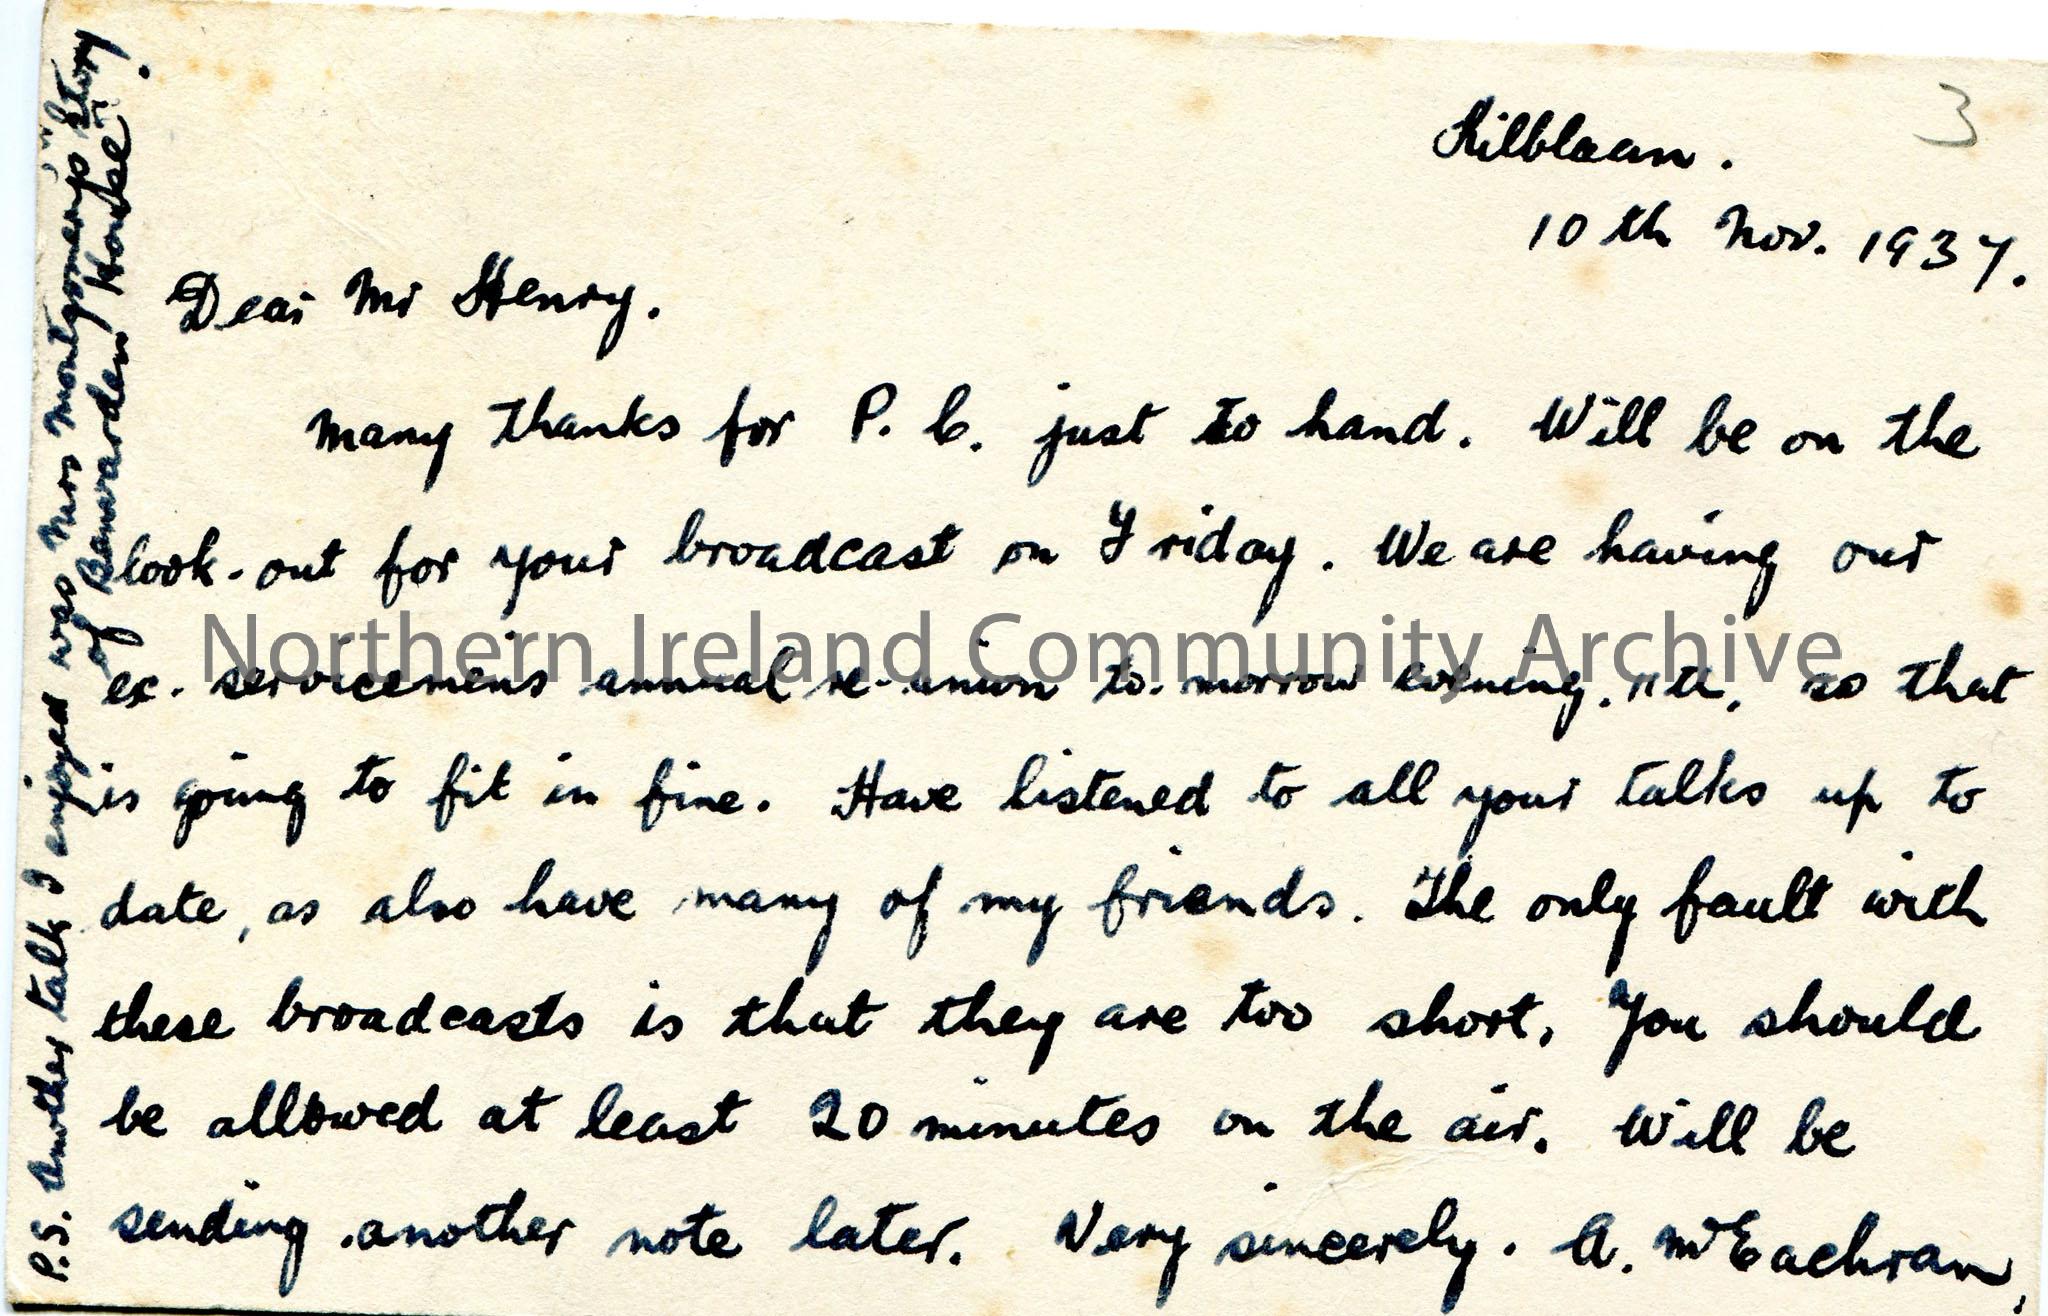 3
Kilblaan.
10th Nov. 1937.
Dear Mr Henry.
Many thanks for P.C. just to hand. Will be on the
look-out for your broadcast on Friday. We are having our
ex-servicemens annual re-union to-morrow evening. 11th, so that
is going to fit in fine. Have listened to all your talks up to
date, as also have many of my friends. The only fault with
these broadcasts is that they are too short. You should
be allowed at least 20 minutes on the air. Will be
sending another note later. Very sincerely. A. McEachran,
P.S. Another talk I enjoyed was Mrs Montgomery's "Story
of Benvarden House".
Northern Ireland Community Archive